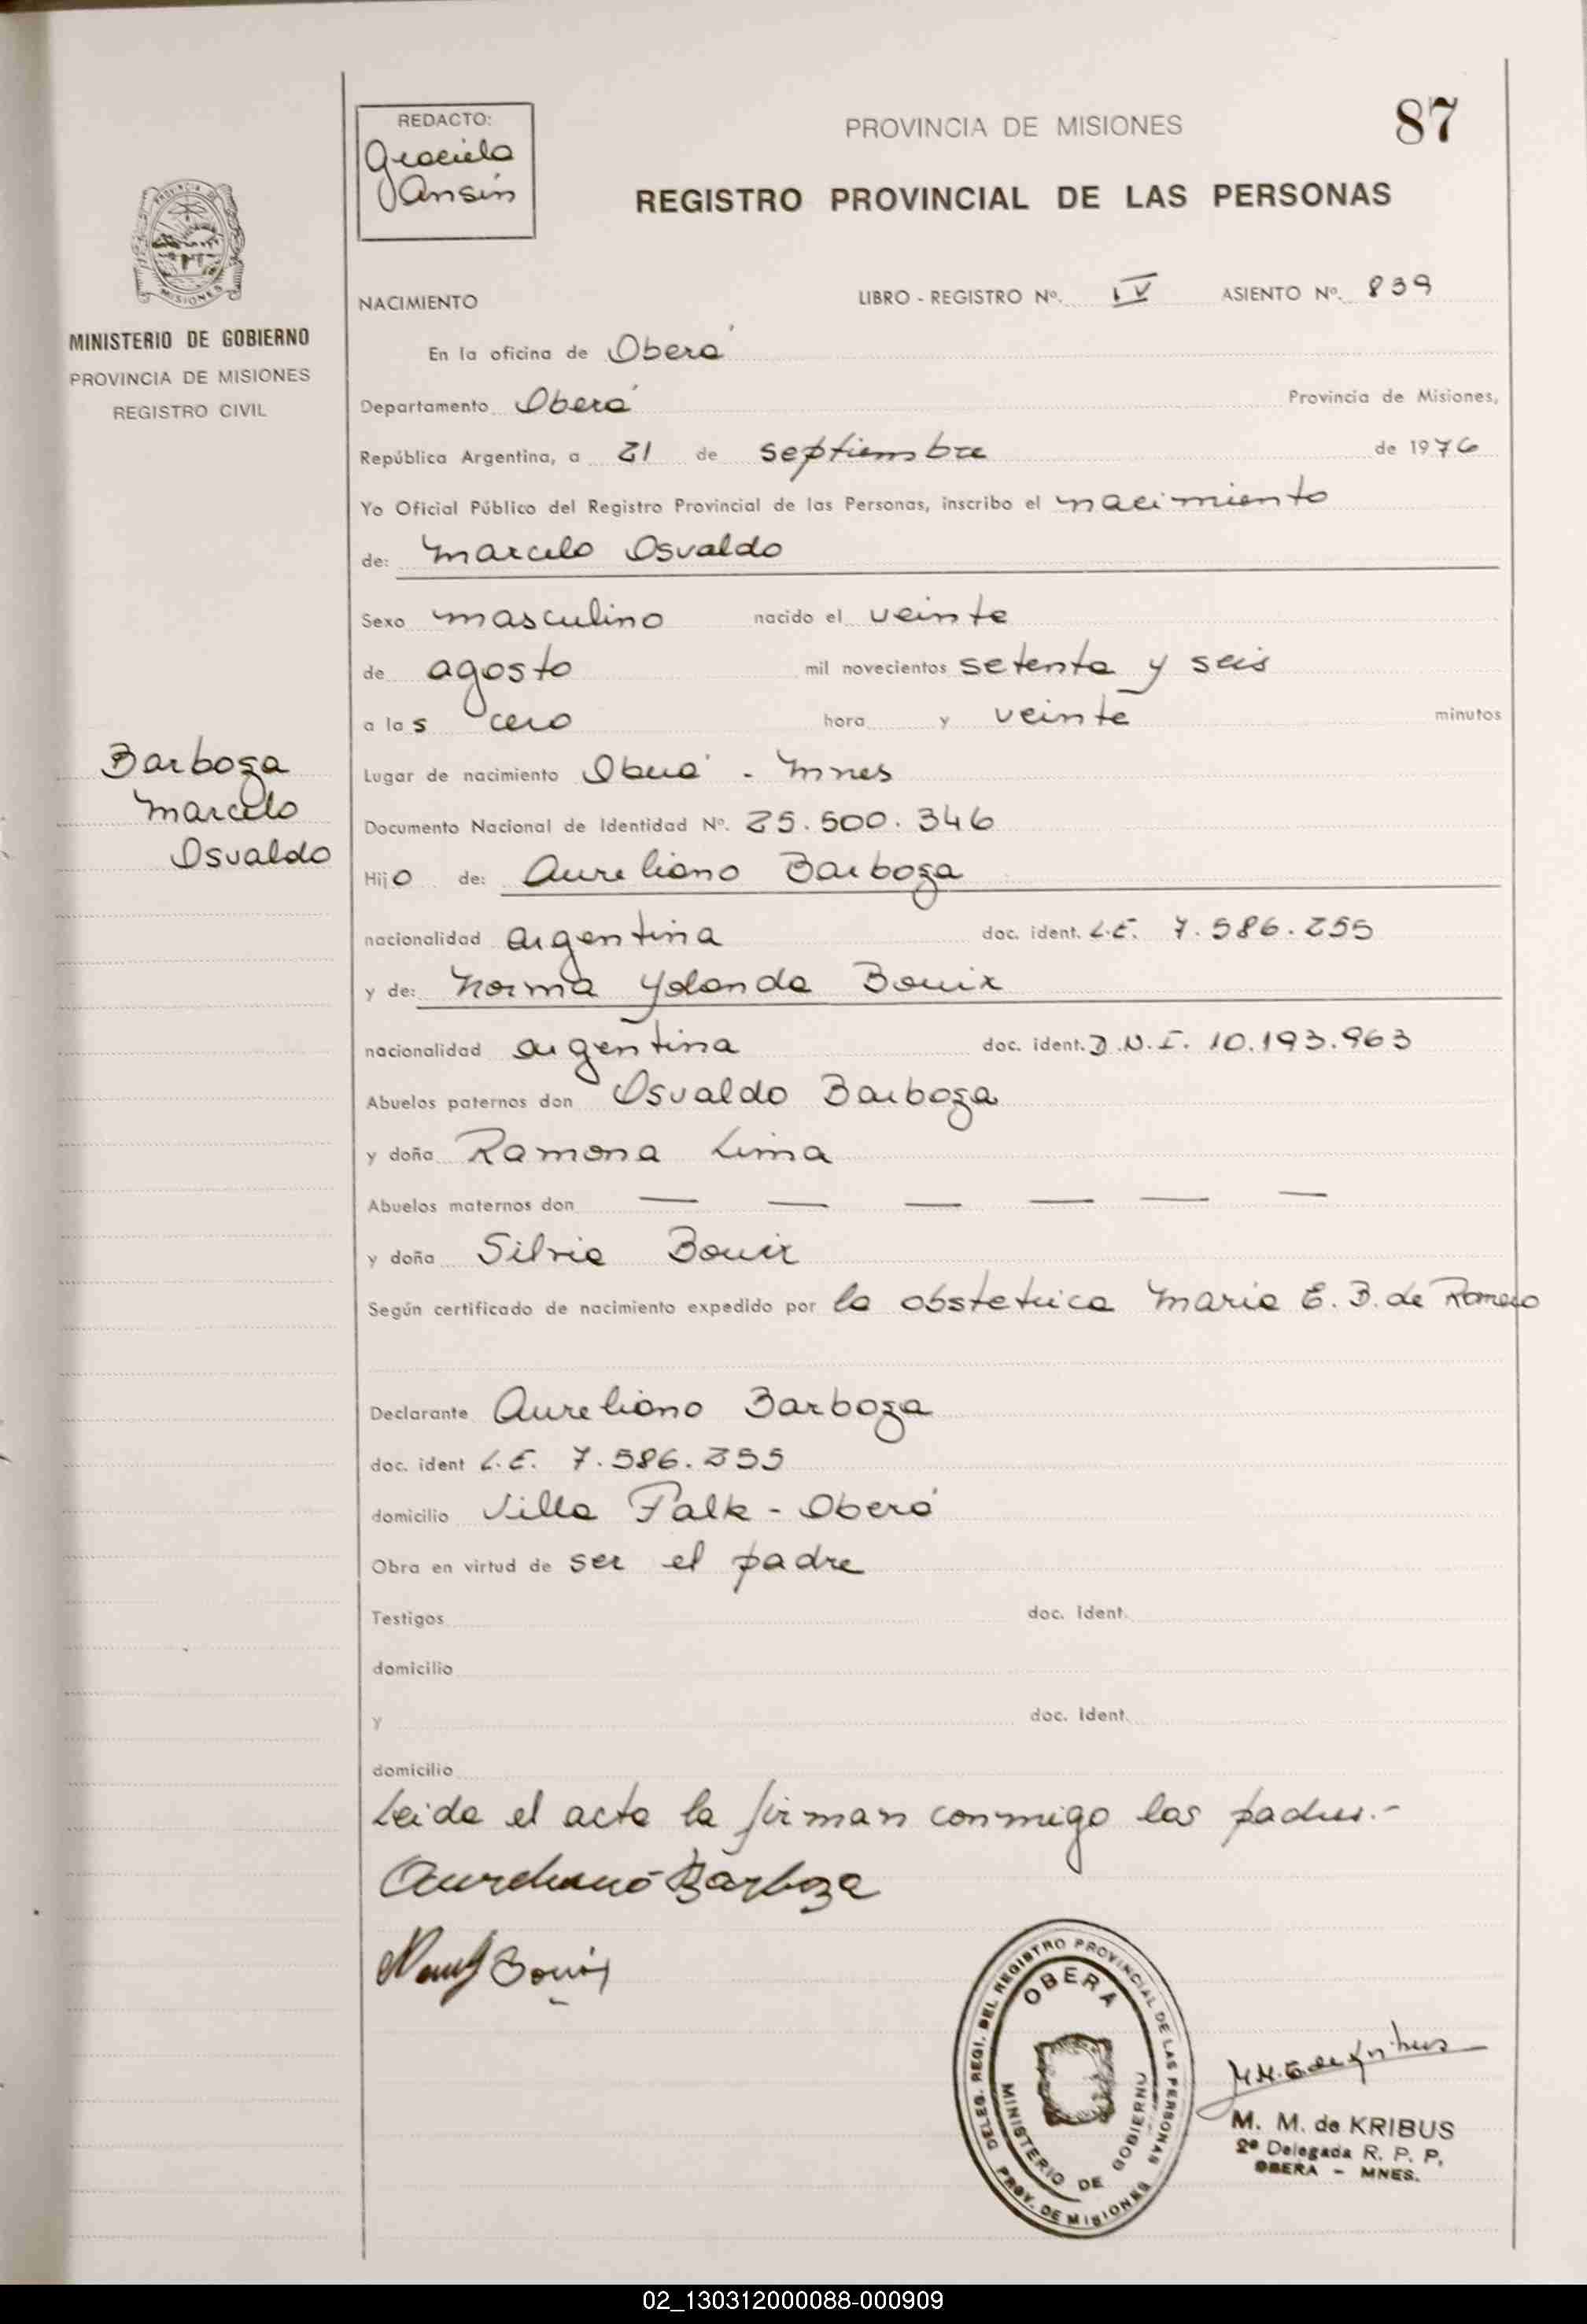 87
REDACTO:
Graciela
Jansin
PROVINCIA DE MISIONES
REGISTRO PROVINCIAL DE LAS PERSONAS
MINISTERIO DE GOBIERNO
PROVINCIA DE MISIONES
REGISTRO CIVIL
Barboza
Marcelo
Osvaldo
NACIMIENTO LIBRO - REGISTRO Nº. IV ASIENTO Nº. 839
En la oficina de Oberá
Departamento Oberá Provincia de Misiones,
República Argentina, a 21 de septiembre de 1976
Yo Oficial Público del Registro Provincial de las Personas, inscribo el nacimiento
de: Marcelo Osvaldo
Sexo masculino nacido el veinte
de agosto mil novecientos setenta y seis
a las cero hora y veinte minutos
Lugar de nacimiento Oberá - Mnes
Documento Nacional de Identidad Nº. 25.500.346
Hijo de: Aureliano Barboza
nacionalidad argentina doc. ident. L.E. 7.586.255
y de: Norma Yolanda Bouix
nacionalidad argentina doc. ident. D.N.I. 10.193.963
Abuelos paternos don Osvaldo Barboza
y doña Ramona Lima
Abuelos maternos don — — — — — —
y doña Silvia Bouix
Según certificado de nacimiento expedido por la obstetrica Maria E. B. de Romero
Declarante Aureliano Barboza
doc. ident L.E. 7.586.255
domicilio Villa Falk - Oberá
Obra en virtud de ser el padre
Testigos doc. Ident.
domicilio
y doc. Ident.
domicilio
Leida el acta la firman conmigo los padres.-
Aureliano Barboza
DELEG. REGI. DEL REGISTRO PROVINCIAL DE LAS PERSONAS
OBERA
MINISTERIO DE GOBIERNO
PROV. DE MISIONES
M. M. de KRIBUS
2ª Delegada R. P. P.
OBERA - MNES.
02_130312000088-000909